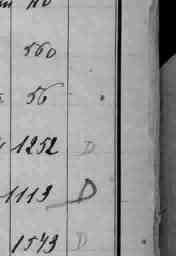 560
56
1252 D
1113 D
1573 D